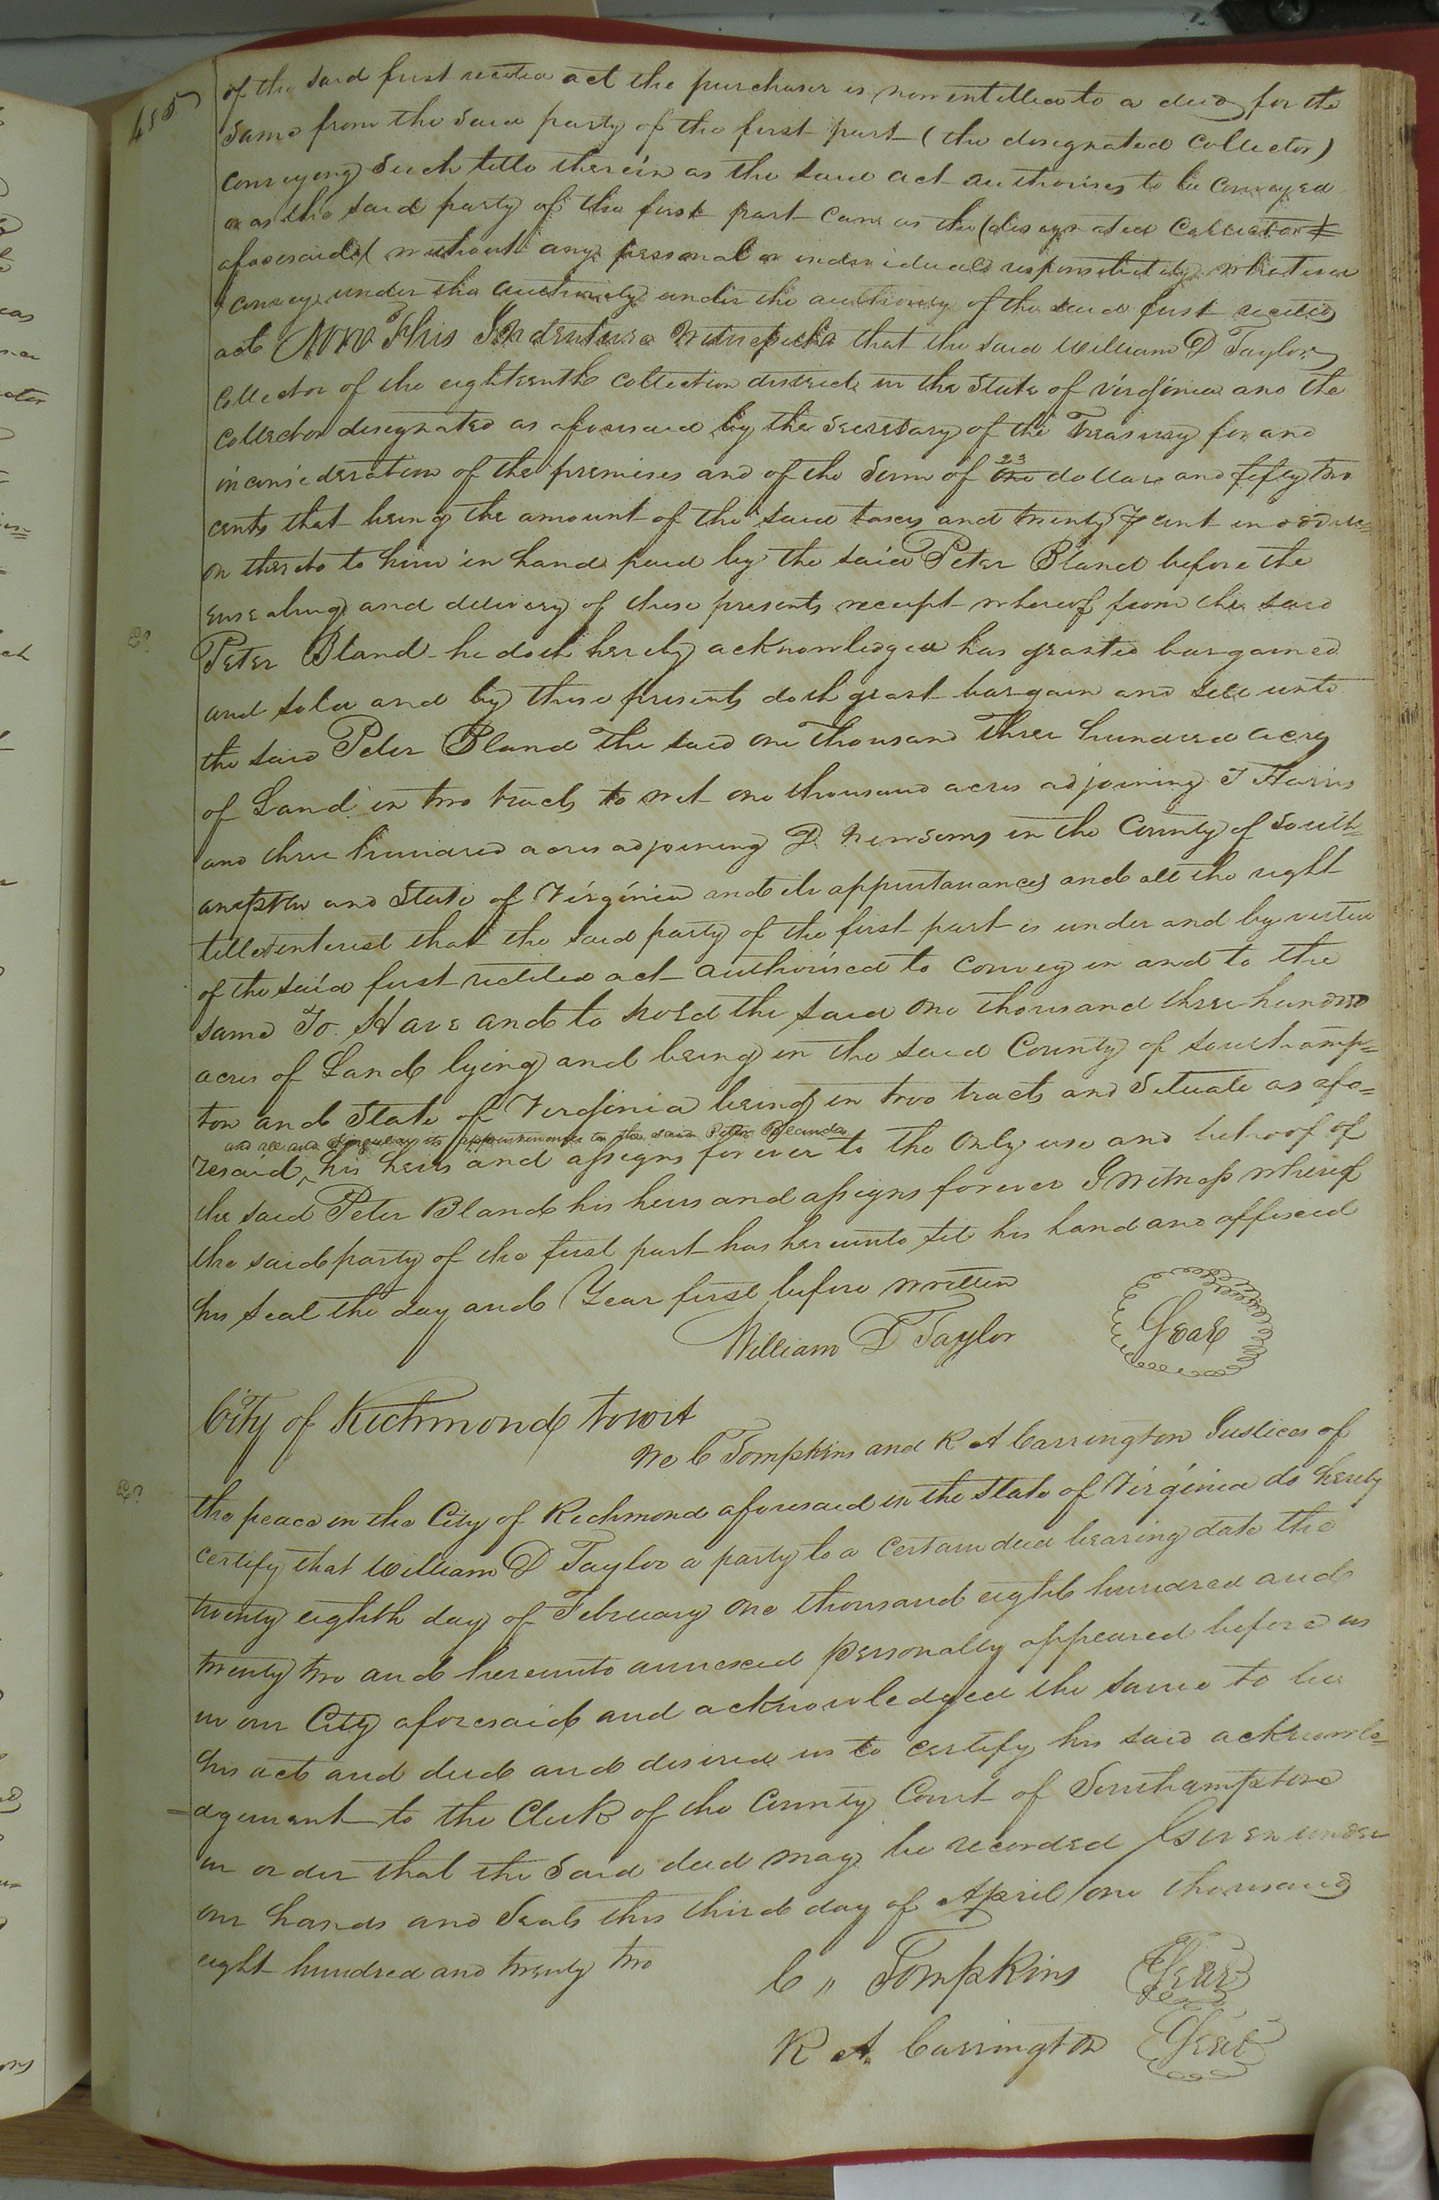 485
of the said first recited act the purchaser is now entitled to a deed for the
same from the said party of the first part (the designated Collector)
conveying such title therein as the said act authorises to be conveyed
or as the said party of the first part can as the (designated Collector
aforesaid) without any personal or individual responsibility whatever
convey under the authority under the authority of the said first recited
act Now This Indenture Witnesseth that the said William D Taylor
Collector of the eighteenth collection district in the State of Virginia and the
Collector designated as aforesaid by the Secretary of the Treasury for and
in consideration of the premises and of the sum of one 23 dollars and fifty two
cents that being the amount of the said taxes and twenty P cent in additi=
on thereto to him in hand paid by the said Peter Bland before the
ensealing and delivery of these presents receipt whereof from the said
Peter Bland he doth hereby acknowledge has granted bargained
and sold and by these presents doth grant bargain and sell unto
the said Peter Bland the said one thousand three hundred acres
of Land in two tracts to wit one thousand acres adjoining T Harris
and three hundred acres adjoining D. Newsoms in the County of South=
ampton and State of Virginia and its appurtanances and all the right
title & interest that the said party of the first part is under and by virtue
of the said first recited act authorised to convey in and to the
same To Have and to hold the said one thousand three hundred
acres of Land lying and being in the said County of Southamp=
ton and State of Virginia being in two tracts and Situate as afo=
and all and singular its appurtenances to the said Peter Bland
resaid ^ his heirs and assigns forever to the only use and behoof of
the said Peter Bland his heirs and assigns forever In Witness whereof
the said party of the first part has hereunto set his hand and affixed
his seal the day and Year first before written
William D Taylor Seal
City of Richmond towit
We C Tompkins and R A Carrington Justices of
the peace in the City of Richmond aforesaid in the State of Virginia do hereby
certify that William D Taylor a party to a certain deed bearing date the
twenty eighth day of February one thousand eight hundred and
twenty two and hereunto annexed personally appeared before us
in our City aforesaid and acknowledged the same to be
his act and deed and desired us to certify his said acknowle=
dgement to the Clerk of the County Court of Southampton
in order that the said deed may be recorded Given under
our hands and Seals this third day of April one thousand
eight hundred and twenty two
C " Tompkins Seal
R A. Carrington Seal